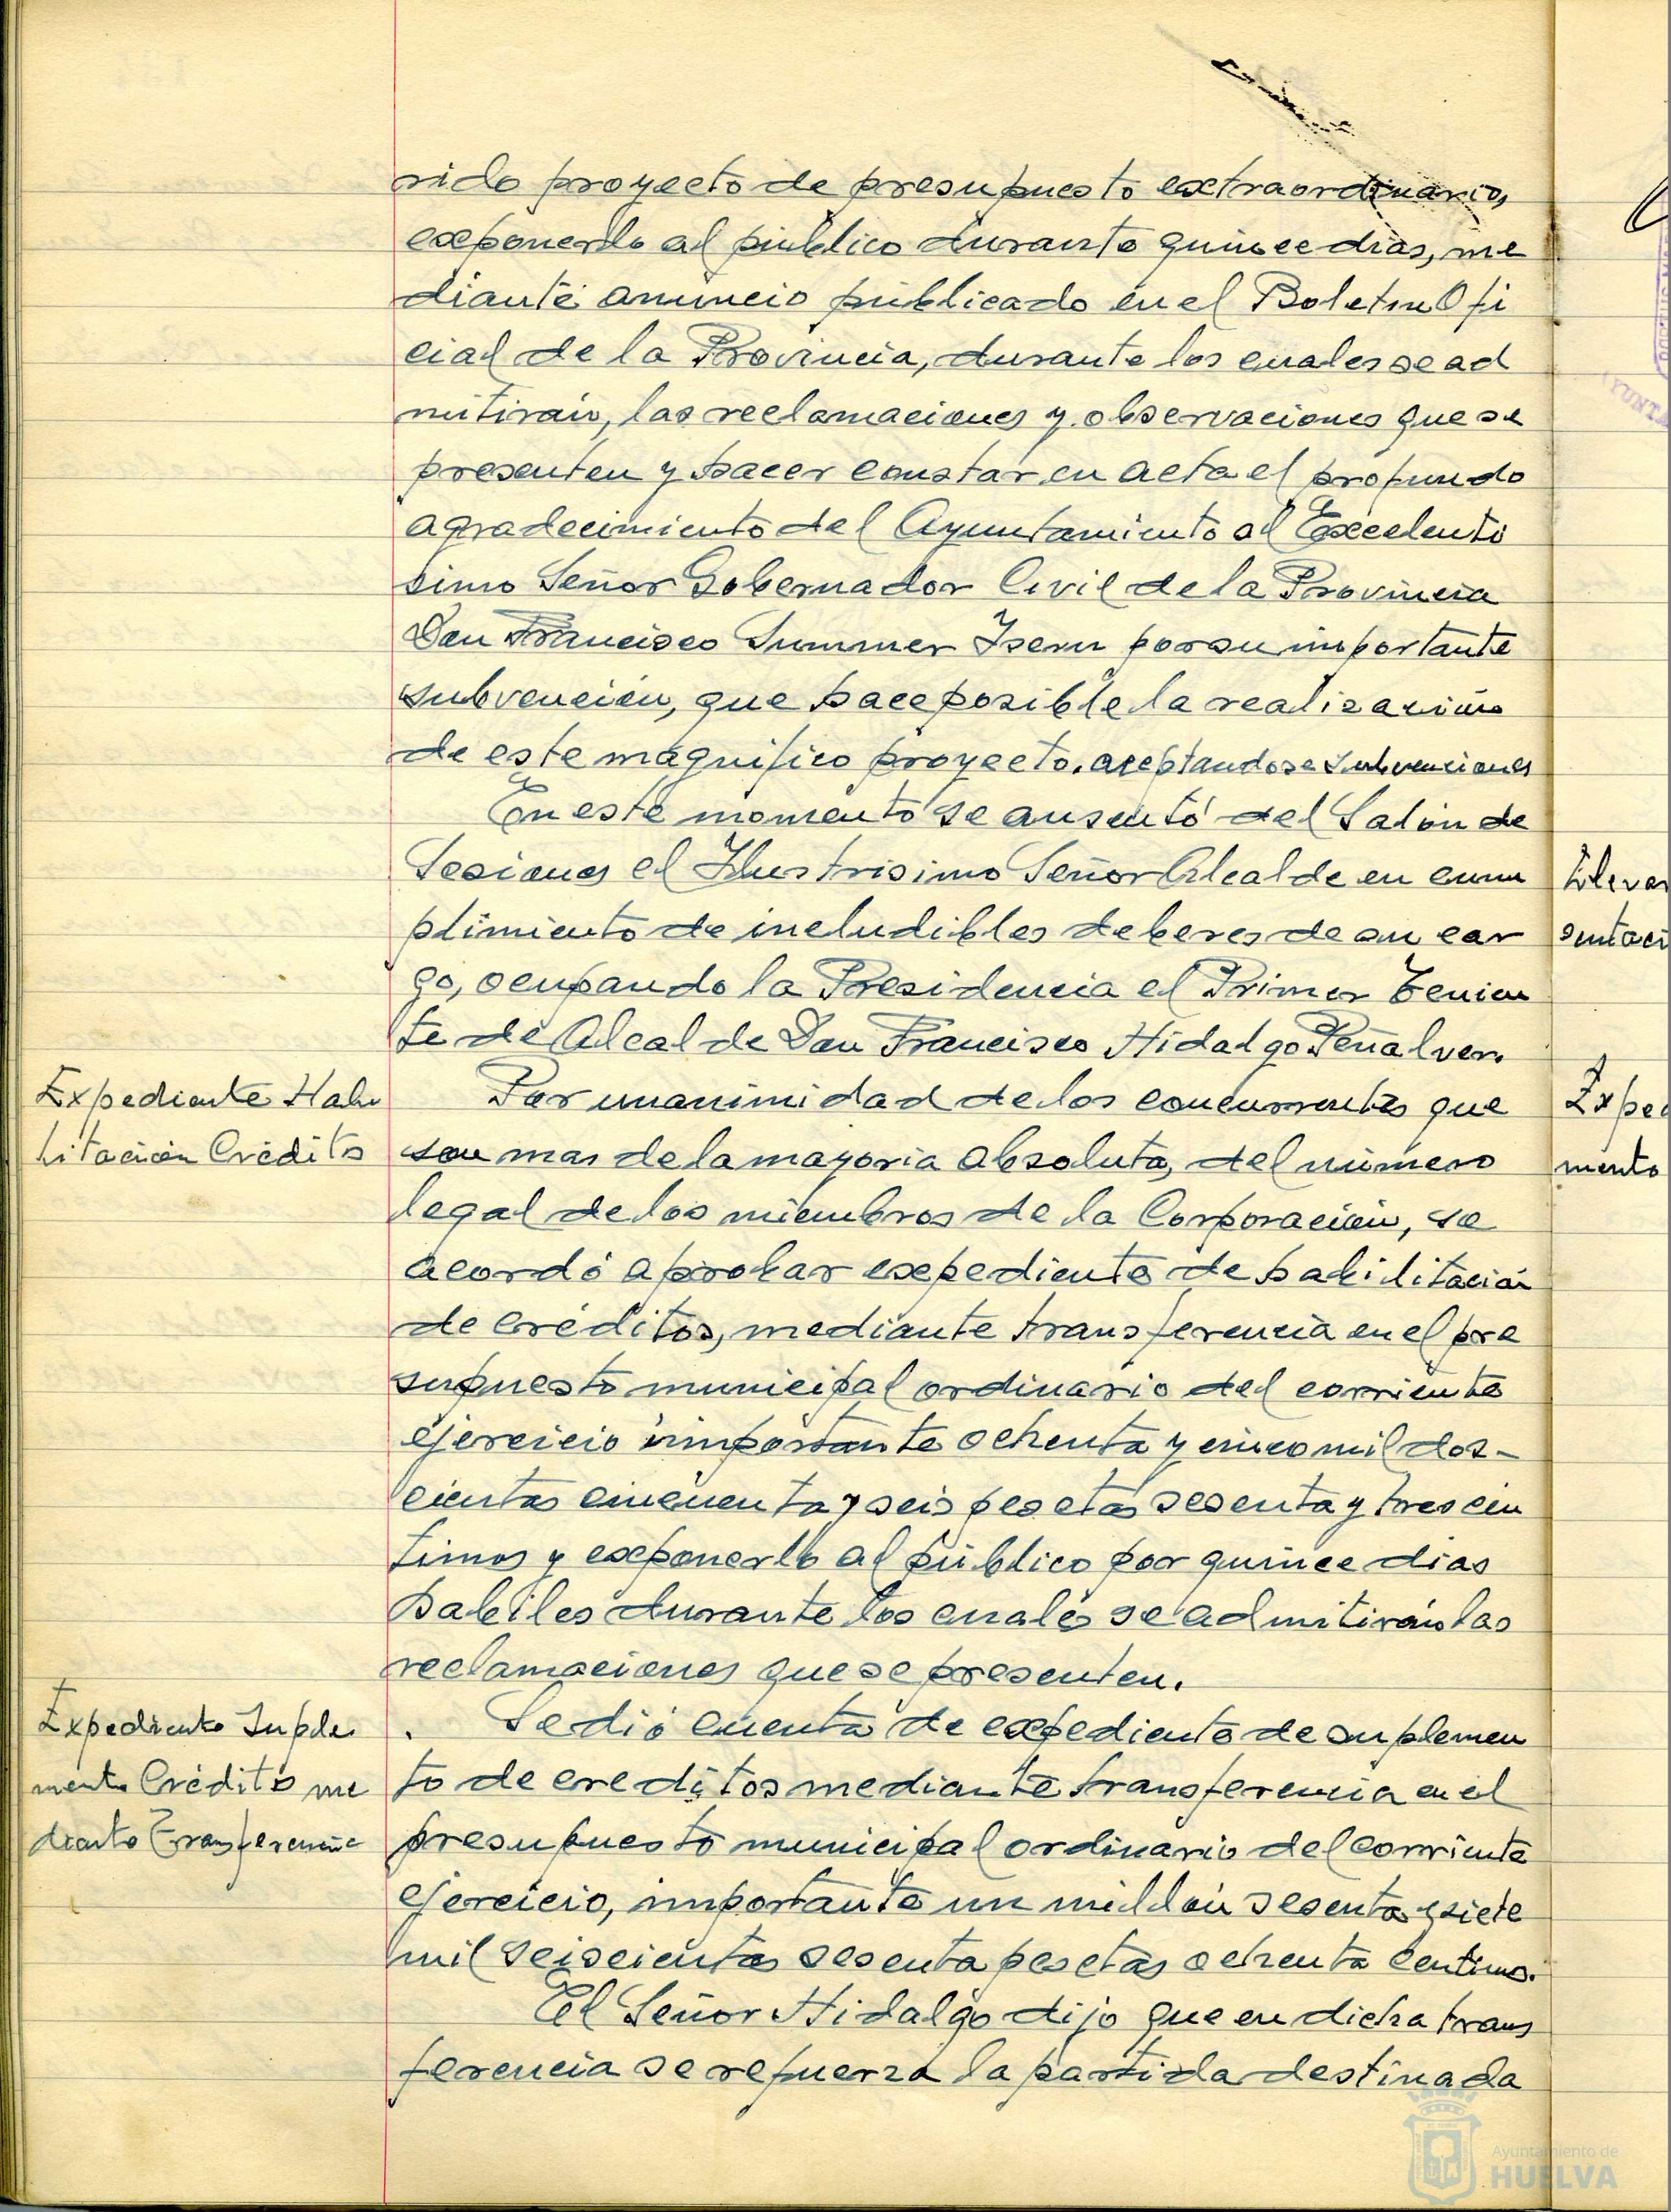 rido proyecto de presupuesto extraordinario,
exponerlo al público durante quince dias, me
diante anuncio publicado en el Boletin Ofi
cial de la Provincia, durante los cuales se ad
mitiran, las reclamaciones y observaciones que se
presenten y hacer constar en acta el profundo
agradecimiento del Ayuntamiento al Excelenti
simo Señor Gobernador Civil de la Provincia
Don Francisco Summer Isern por su importante
subvención, que hace posible la realización
de este magnifico proyecto. aceptandose subvenciones
En este momento se ausentó del Salón de
Sesiones el Ilustrisimo Señor Alcalde en cum
plimiento de ineludibles deberes de su car
go, ocupando la Presidencia el Primer Tenien
te de Alcalde Don Francisco Hidalgo Peñalver.
Expediente Habi
litación Crédito
Por unanimidad de los concurrentes que
son mas de la mayoria absoluta, del número
legal de los miembros de la Corporación, se
acordó aprobar expediente de habilitación
de créditos, mediante transferencia en el pre
supuesto municipal ordinario del corriente
ejercicio importante ochenta y cinco mil dos-
cientas cincuenta y seis pesetas sesenta y tres cen
timos y exponerlo al público por quince dias
habiles durante los cuales se admitirán las
reclamaciones que se presenten.
Expediente Suple
mento Crédito me
diante Transferencia
. Se dió cuenta de expediente de suplemen
to de creditos mediante transferencia en el
presupuesto municipal ordinario del corriente
ejercicio, importante un millón sesenta y siete
mil seiscientas sesenta pesetas ochenta centimos.
El Señor Hidalgo dijo que en dicha trans
ferencia se refuerza la partida destinada
Exped
mento
Ayuntamiento de
HUELVA